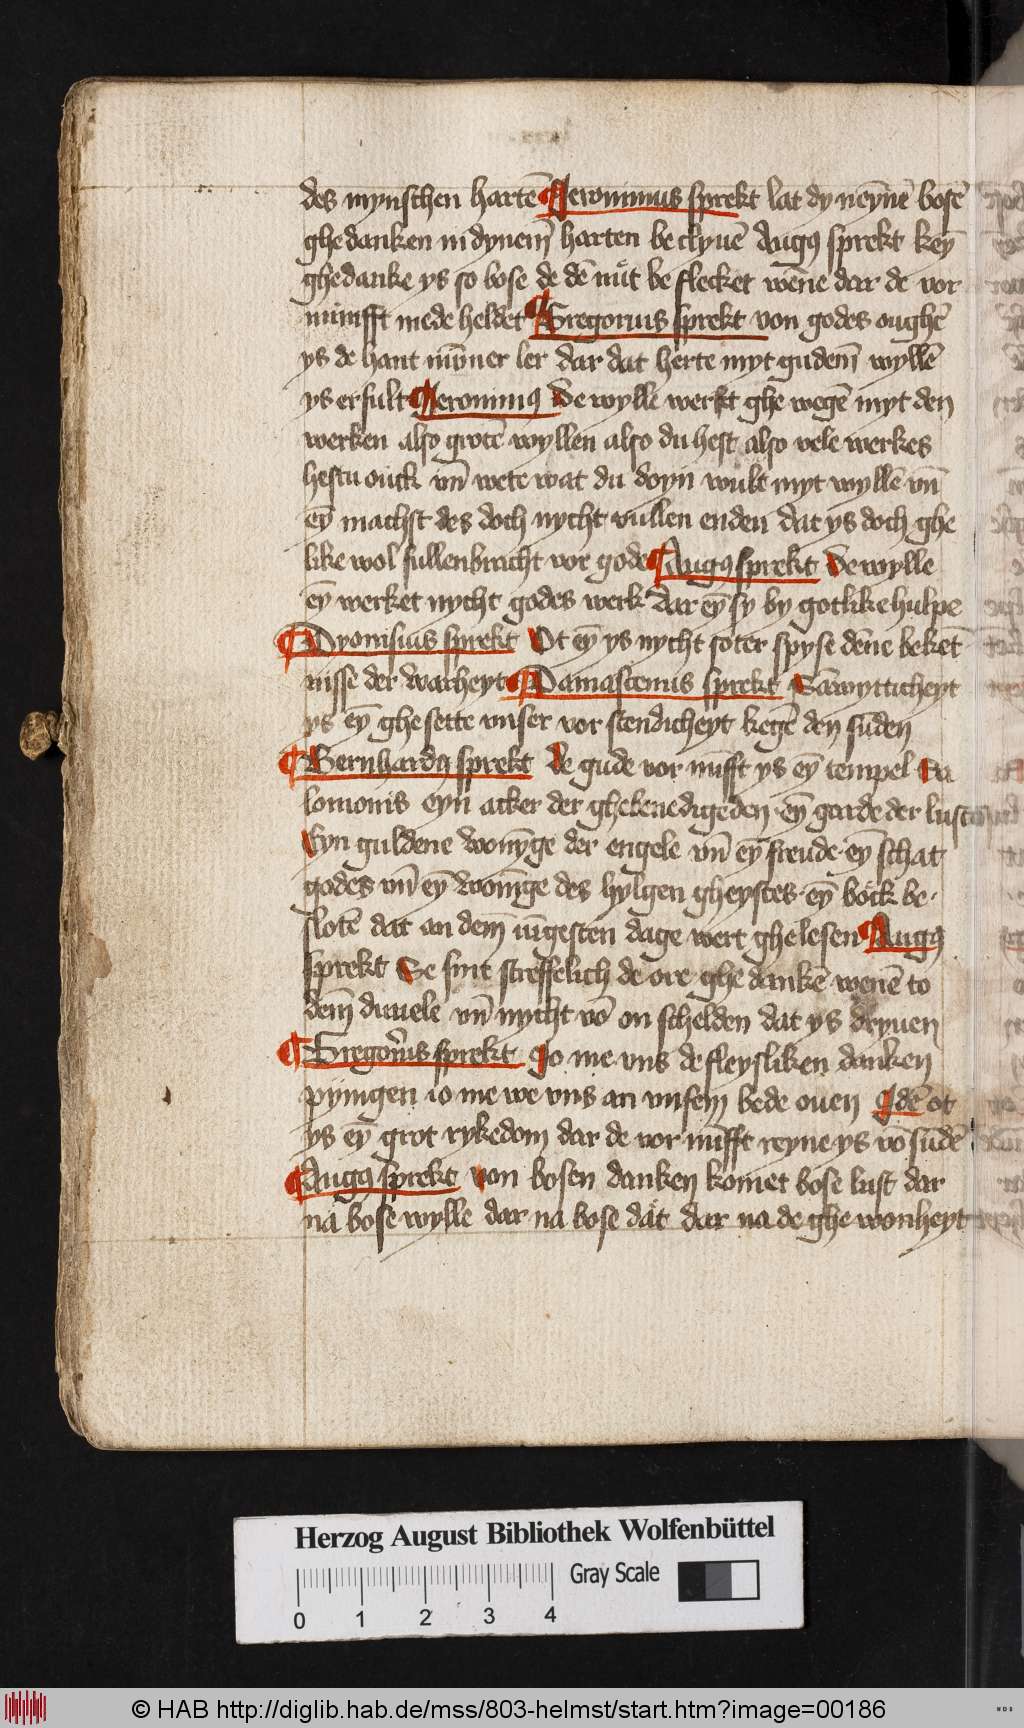 des mynschen hartē ¶ Jeronimus sprekt lat dy neyne bosē
ghedanken in dynem̄ harten be clyuē Augꝯ sprekt keȳ
ghedanke ys so bose de dē mūt be flecket wēne dar de vor
nunfft mede heldet ¶ Gregorius sprekt von godes oughē
ys de hant nūmer ler dar dat herte myt gudem̄ wyllē
ys erfult ¶ Jeronimꝯ De wylle werkt ghe wegē myt den
werken also grotē wyllen also du hest also vele werkes
hestu ouck vn̄ wete wat du doyn wult myt wyllē vn̄
eȳ machst des doch nycht vullen enden dat ys doch ghe
like wol fullenbracht vor gode ¶ Augꝯ sprekt De wylle
eȳ werket nycht godes werk dar eȳ sy by gotlike hulpe
¶ Dyonisius sprekt Ot eȳ ys nycht soter spyse dēne bekēt
nisse der warheyt ¶ Damascenus sprekt Sāwytticheyt
ys eȳ ghe sette vnser vor stendicheyt kegē den sūden
¶ Bernhardꝯ sprekt de gude vor nūfft ys eȳ tempel sa
lomonis eyn acker der ghebenedigeden · eȳ garde der lust
Eyn guldene wonȳge der engele vn̄ eȳ freude · eȳ schat
godes vn̄ eȳ wonīge des hylgen gheystes · eȳ bo̊ck be ·
slotē dat an dem̄ iūgesten dage wert ghe lesen ¶ Augꝯ
sprekt Se sint streffelich de ore ghe dankē wenē to
dem̄ duuele vn̄ nycht vō on schelden dat ys dryuen
¶ Gregoriꝯ sprekt Jo me vns de fleysliken danken
pynigen io me we vns an vnsem bede ouen ¶ Idē ot
ys eȳ grot rykedom dar de vor nūfft reyne ys vō sūdē
¶ Augꝯ sprekt von bosen danken komet bose lust dar
na bose wylle dar na bose dat dar na de ghe wonheyt
Herzog August Bibliothek Wolfenbüttel
Gray Scale
0 1 2 3 4
© HAB http://diglib.hab.de/mss/803-helmst/start.htm?image=00186